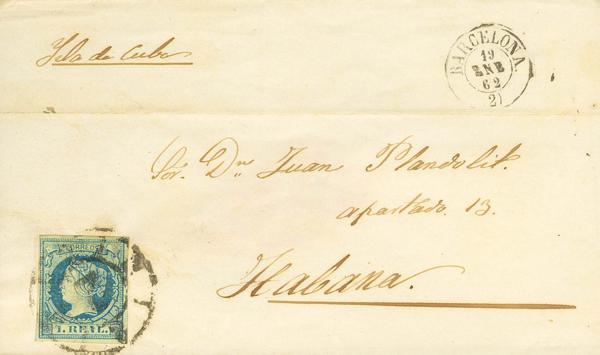 Isla de Cuba
BARCELONA.
19
ENE
62
2)
Sor. Dn Juan Plandolit.
apartado. 13.
Habana.
CORREOS
1. REAL.